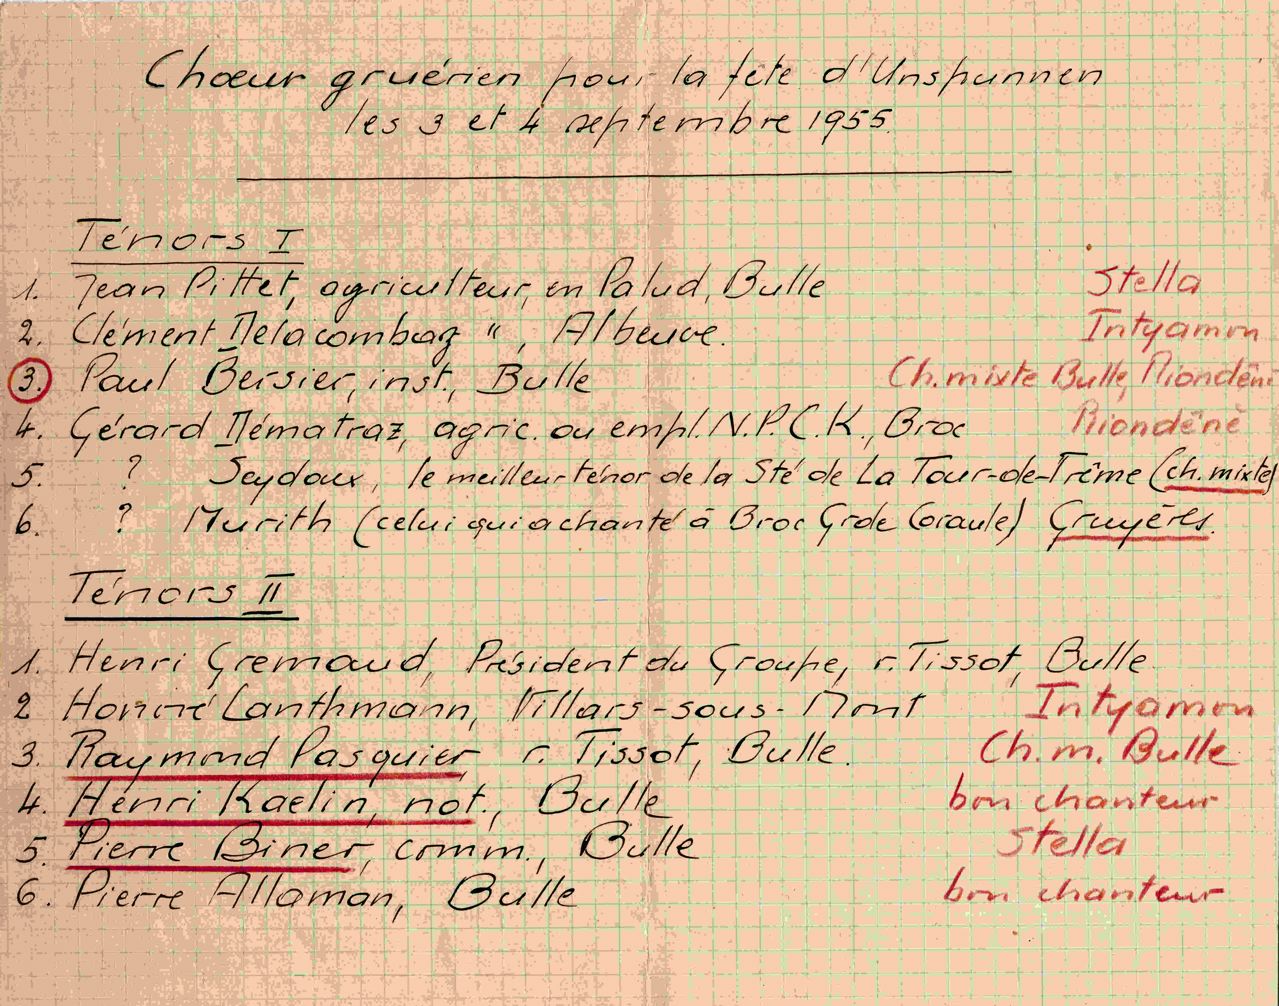 Chœur gruérien pour la fête d'Unspunnen
les 3 et 4 septembre 1955.
Ténors I
1. Jean Pittet, agriculteur, en Palud, Bulle Stella
2. Clément Delacombaz " , Albeuve. Intyamon
3. Paul Bersier, inst, Bulle Ch. mixte Bulle, Riondênè
4. Gérard Dématraz, agric. ou empl. N.P.C.K., Broc Riondênè
5. ? Seydoux, le meilleur ténor de la Sté de La Tour-de-Trême (ch. mixte)
6. ? Murith (celui qui a chanté à Broc Grde Coraule) Gruyères.
Ténors II
1. Henri Gremaud, Président du Groupe, r. Tissot, Bulle
2 Honoré Lanthmann, Villars-sous-Mont Intyamon
3. Raymond Pasquier r. Tissot, Bulle. Ch. m. Bulle
4. Henri Kaelin, not., Bulle bon chanteur
5. Pierre Biner, comm., Bulle Stella
6. Pierre Allaman, Bulle bon chanteur